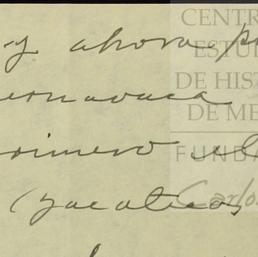 y ahora p
ernavaca
rimero
(zacatecas
CENTR
ESTU
DE HIS
DE ME
FUNDA
Carlos